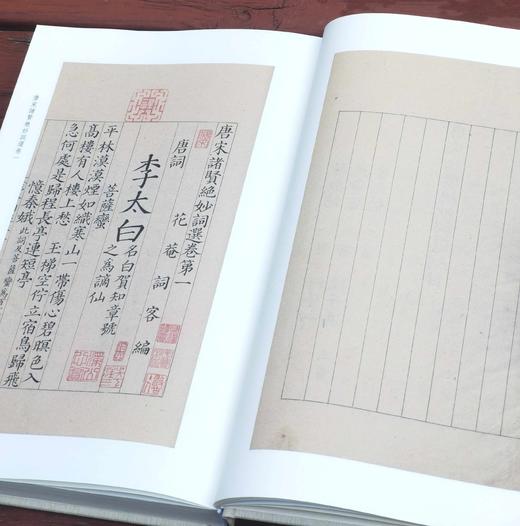 唐宋諸賢絶妙詞選卷第一
唐詞 花菴詞客編
李太白 名白賀知章號
之爲謫仙
菩薩蠻
平林漠漠煙如織寒山一帶傷心碧暝色入
高樓有人樓上愁 玉梯空佇立宿鳥歸飛
急何處是歸程長亭連短亭
憶秦娥 此詞及菩薩蠻爲百
唐宋諸賢絶妙詞選卷一